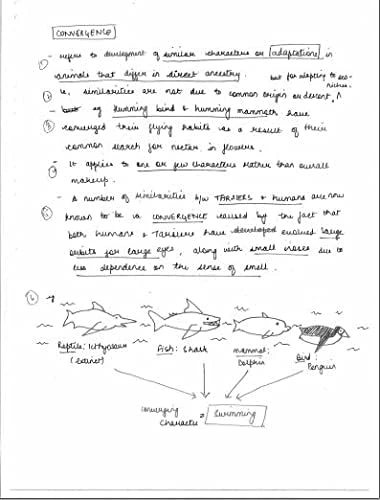 CONVERGENCE
① - refers to development of similar characters or adaptations in
animals that differ in direct ancestry.
② ie, similarities are not due to common origin or descent, ^ but for adapting to eco-niches.
③ - eg Humming bird & humming mammoth have
converged their flying habits as a result of their
common search for nectar in flowers.
④ - It applies to one or few characters rather than overall
makeup.
⑤ - A number of similarities b/w TARSIERS & humans are now
known to be in CONVERGENCE caused by the fact that
both humans & Tarsiers have developed evolved large
orbits for large eyes, along with small noses due to
less dependence on the sense of smell.
⑥ →
Reptile: Icthyosaur
(Extinct)
Fish: Shark
mammal:
Dolphin
Bird:
Penguin
converging
Character = Swimming